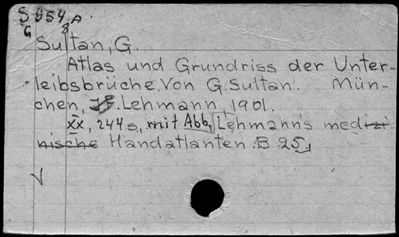 S 954 A.
G 8
Sultan, G.
Atlas und Grundriss der Unter-
leibsbrüche. Von G. Sultan. Mün-
chen, J.F. Lehmann, 1901.
XX, 244 s., mit Abb. Lehmann's medizi-
nische Handatlanten. B 25.